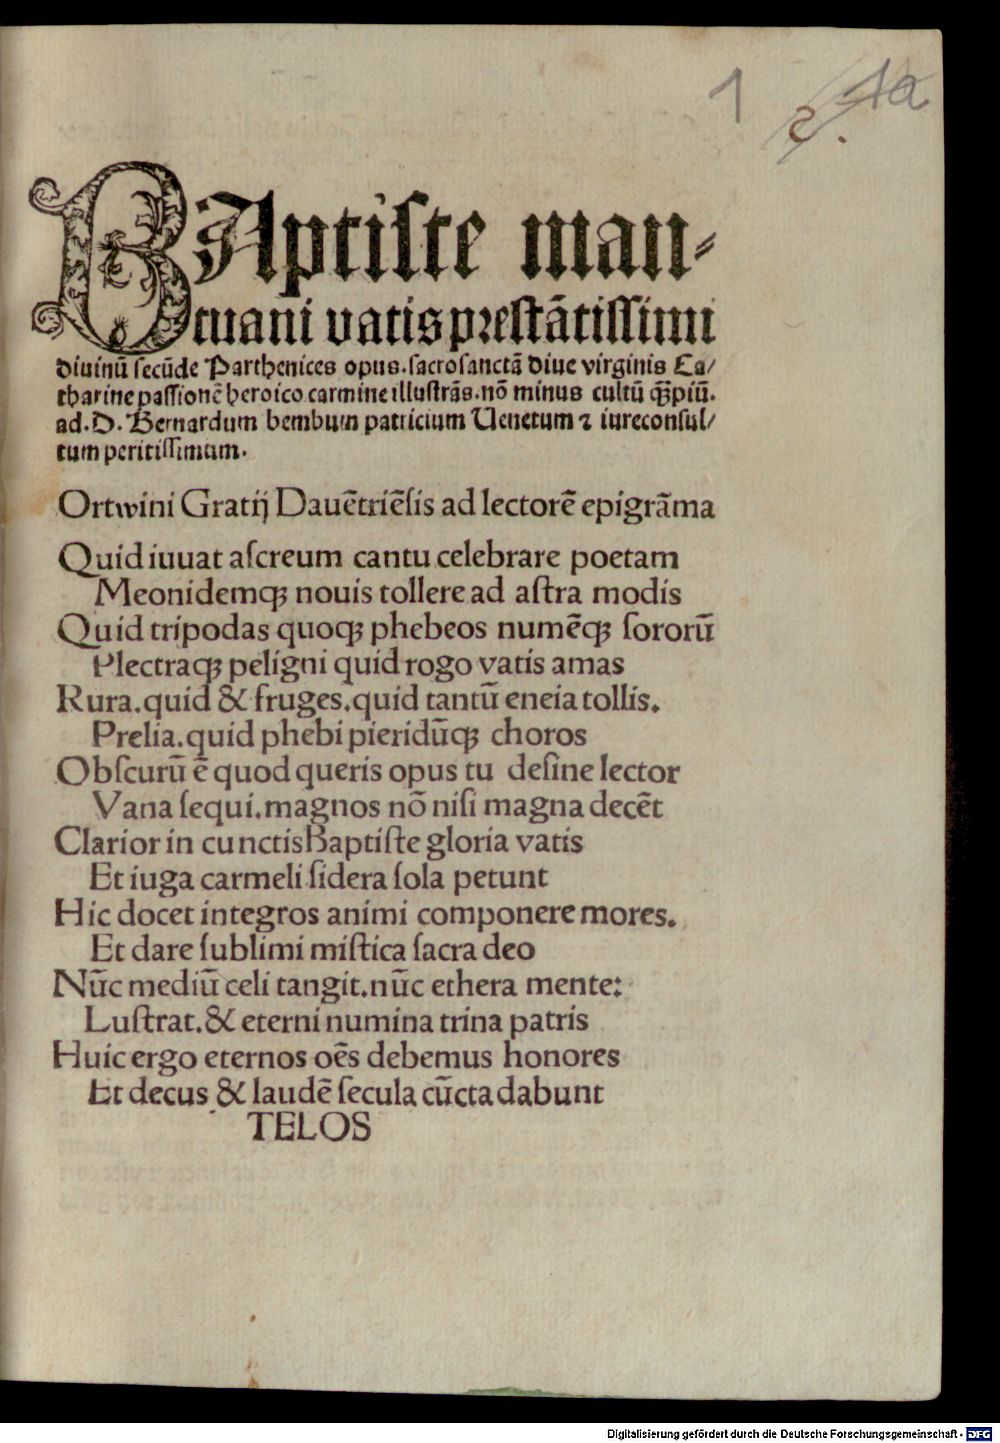 1 1a
2.
BAptiste man⸗
tuani vatis prestãtissimi
diuinũ secũde Parthenices opus. sacrosanctã diue virginis Ca/
tharine passionẽ heroico carmine illustrãs. nõ minus cultũ q̃ȝ piũ.
ad. D. Bernardum bembum patricium Uenetum ⁊ iureconsul/
tum peritissimum.
Ortwini Gratij Dauẽtriẽsis ad lectorẽ epigrãma
Quid iuuat ascreum cantu celebrare poetam
Meonidemqꝫ nouis tollere ad astra modis
Quid tripodas quoqꝫ phebeos numẽqꝫ sororũ
Plectraqꝫ peligni quid rogo vatis amas
Rura. quid & fruges. quid tantũ eneia tollis.
Prelia. quid phebi pieridũqꝫ choros
Obscurũ ẽ quod queris opus tu desine lector
Vana sequi. magnos nõ nisi magna decẽt
Clarior in cunctis Baptiste gloria vatis
Et iuga carmeli sidera sola petunt
Hic docet integros animi componere mores.
Et dare sublimi mistica sacra deo
Nũc mediũ celi tangit. nũc ethera mente:
Lustrat. & eterni numina trina patris
Huic ergo eternos oẽs debemus honores
Et decus & laudẽ secula cũcta dabunt
TELOS
Digitalisierung gefördert durch die Deutsche Forschungsgemeinschaft - DFG